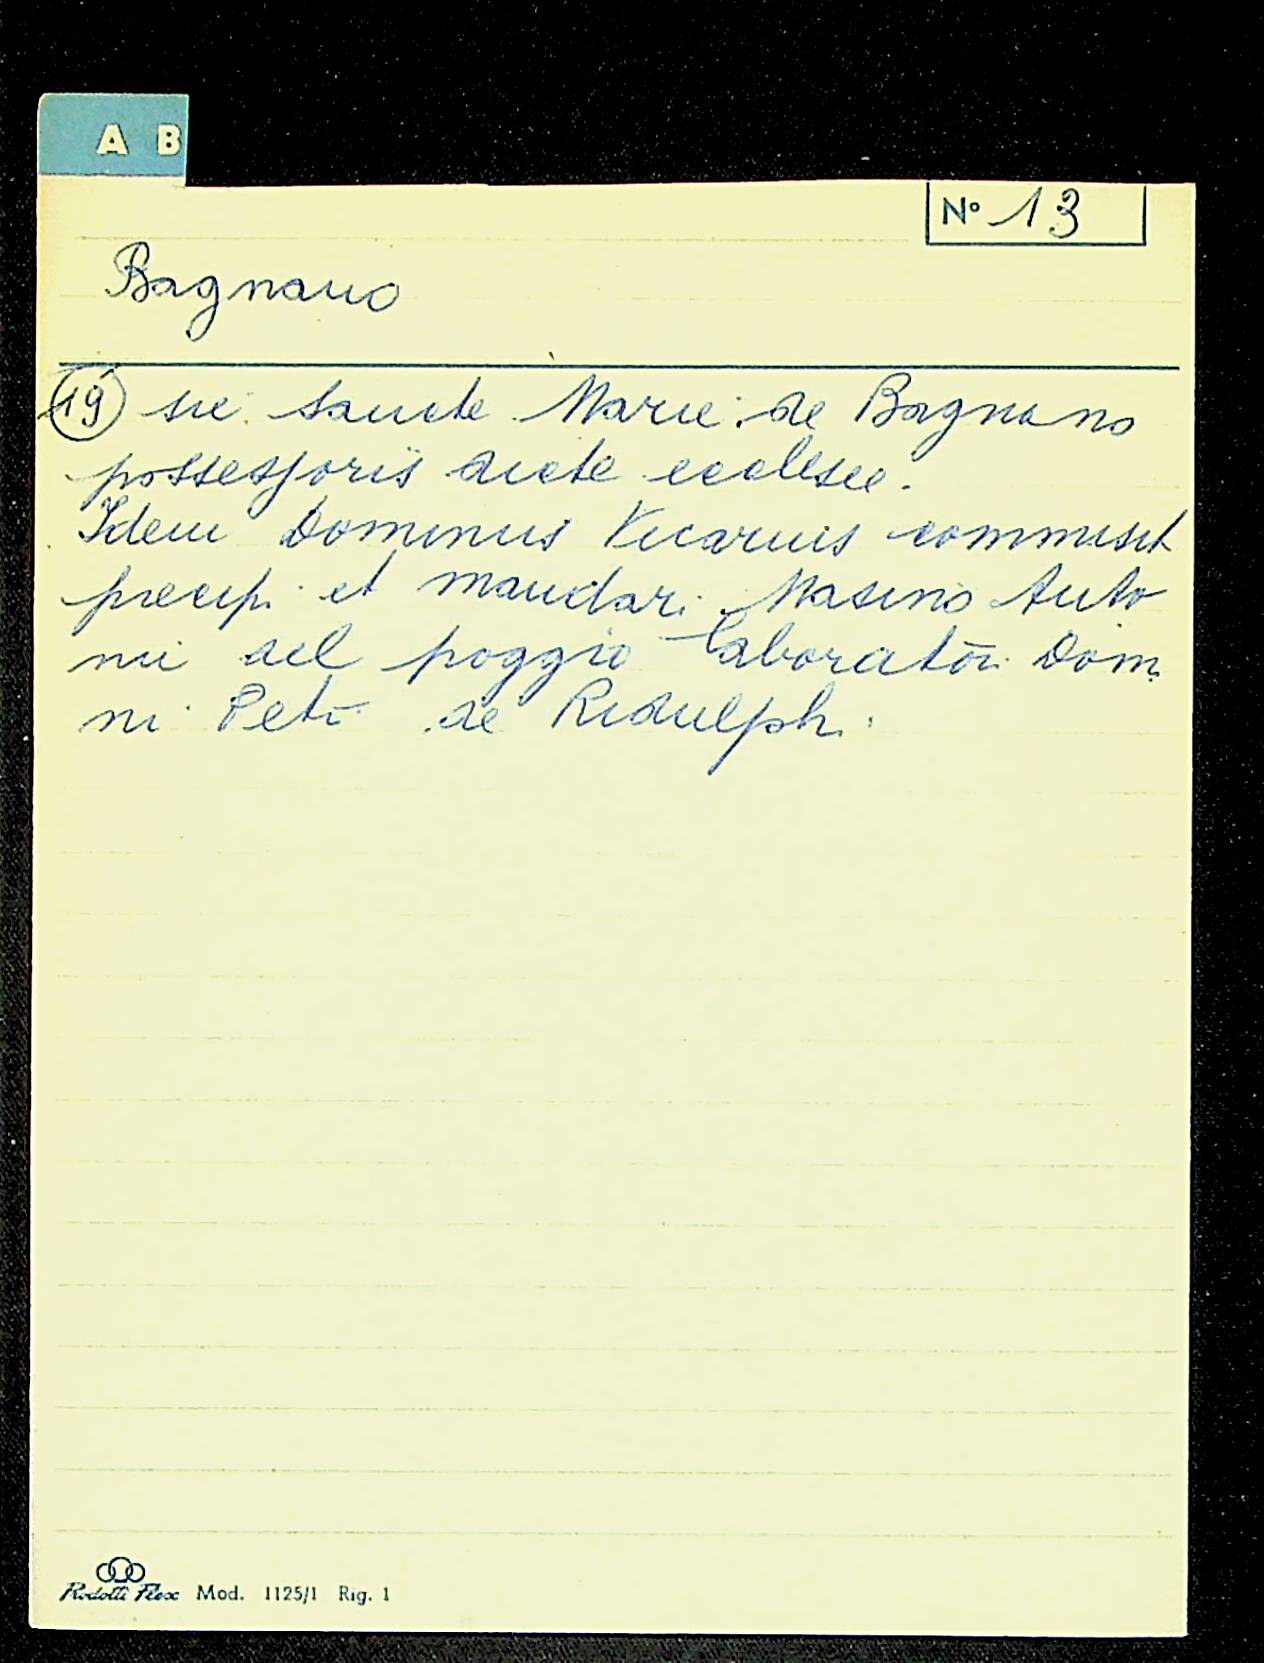 A B
Nº 13
Bagnano
19 sie Sancte Marie de Bagnano
possessoris dicte ecclesie.
Idem Dominus Vicarius commisit
precipi et mandari Masino Anto
nii del poggio laboratōri Domi
ni Petri de Ridulph.
Rodolli Flex Mod. 1125/1 Rig. 1